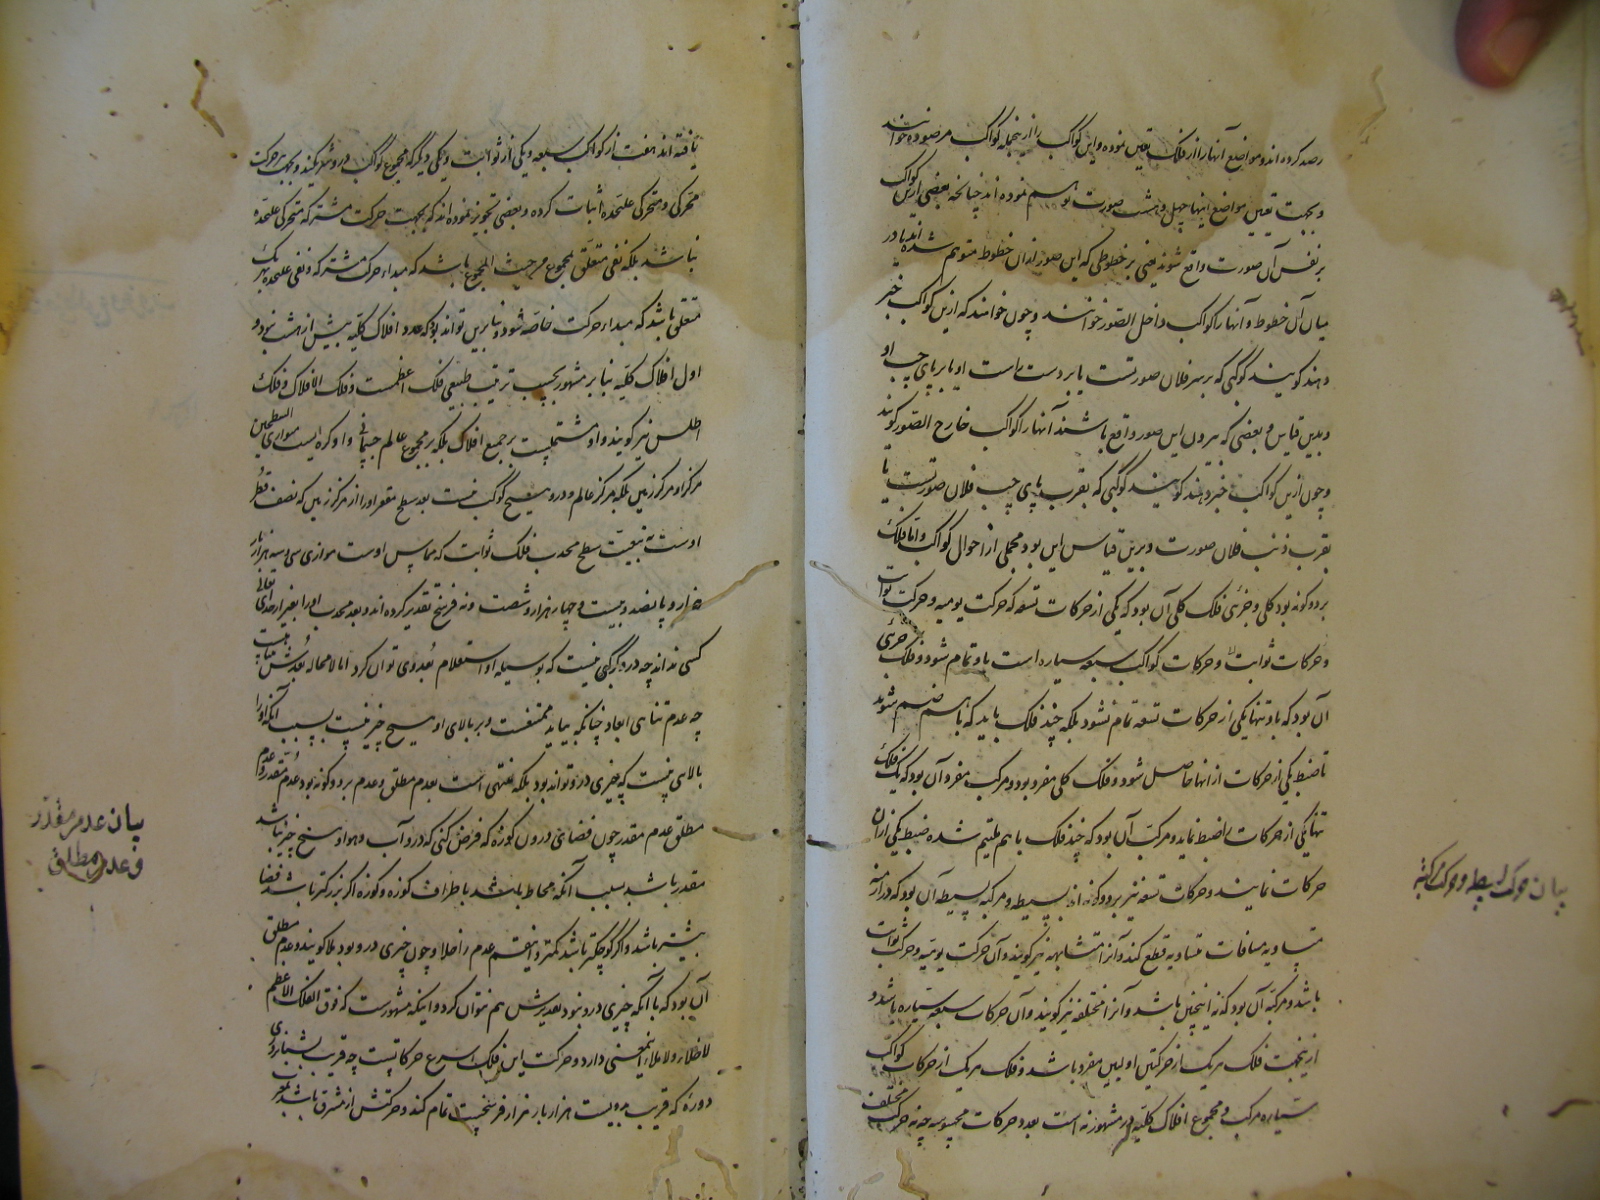 رصد کرده اند و مواضع آنها را از فلک تعین نموده و این کواکب را از نجمله کواکب مرصوده خوانند
و بجهت تعین مواضع اینها چهل و هشت صورت توهم نموده اند چنانچه بعضی ازین کواکب
بر نفس آن صورت واقع شوند یعنی بر خطوطی که این صور از ان خطوط متوهم شده اند یا در
میان آن خطوط و آنها را کواکب داخل الصور خوانند و چون خوانند که ازین کواکب خبر
دهند گویند کوکبی که بر سر فلان صورتست یا بر دست راست او یا بر پای چپ او
و بدین قیاس و بعضی که بیرون این صور واقع باشند آنها را کواکب خارج الصور گویند
و چون ازین کواکب خبر دهند گویند کوکبی که بقرب پای چپ فلان صورتست یا
بقرب ذنب فلان صورت و برین قیاس این بود مجملی از احوال کواکب و اما فلک
بر دو کونه بود کلی و جزئی فلک کلی آن بود که یکی از حرکات تسعه که حرکت یومیه و حرکت ثوابت
و حرکات ثوابت و حرکات کواکب سبعه سیاره است باو تمام شود و فلک جزئی
آن بود که باو تنها یکی از حرکات تسعه تمام نشود بلکه چند فلک باید که با هم ضم شوند
تا ضبط یکی از حرکات از انها حاصل شود و فلک کلی مفرد بود و مرکب مفرد آن بود که یک فلک
تنها یکی از حرکات را ضبط نماید و مرکب آن بود که چند فلک با هم ملتیم شده ضبط یکی ازان
حرکات نمایند و حرکات تسعه نیز بر دو کونه اند بسیطه و مرکبه بسیطه آن بود که در ازمنه
متساویه مسافات متساویه قطع کند و آنرا متشابهه نیز گویند و آن حرکت یومیه و حرکت ثوابت
باشد و مرکبه آن بود که نه اینچنین باشد و آنرا مختلفه نیز گویند و آن حرکات سبعه سیاره باشد و
ازینجهت فلک هر یک از حرکتین اولیین مفرد باشد و فلک هر یک از حرکات کواکب
سیاره مرکب و مجموع افلاک کلیه در مشهور نه است بعدد حرکات محسوسه چه نه حرکت مختلف
بیان حرکت بسیطه و حرکت مرکبه
یافته اند هفت از کواکب سبعه و یکی از ثوابت و یکی دیگر که مجموع کواکب درو شریکند و بجهت هر حرکت
محرکی و متحرکی علیحده اثبات کرده و بعضی تجویز نموده اند که بجهت حرکت مشترکه متحرکی علیحده
نباشد بلکه نفی متعلق بمجموع من حیث المجموع باشد که مبداء حرکت مشترکه و نفی علیحده بهر یک
متعلق باشد که مبداء حرکت خاصه شود و بنابرین تواند بود که عدد افلاک کلیه بیش از هشت نبود و
اول افلاک کلیه بنا بر مشهور بحسب ترتیب طبیعی فلک اعظمست و فلک الافلاک و فلک
اطلس نیز گویند و او مشتملست بر جمیع افلاک بلکه بر مجموع عالم جسمانی و او کره ایست متوازی السطحین
مرکز او مرکز زمین بلکه مرکز عالم و درو هیچ کوکب نیست بعد سطح مقعر او را از مرکز زمین که نصف قطر
اوست به تبعیت سطح محدب فلک ثوابت که مماس اوست موازی سی و سه هزار بار
هزار و پانصد و بیست و چهار هزار و شصت و نه فرسخ تقدیر کرده اند و بعد محدب او را بغیر از خدای تعالی
کسی نداند چه درو کوکبی نیست که بوسیله او استعلام بُعد وی توان کرد اما لا محاله بُعدش متناهیست
چه عدم تناهی ابعاد چنانکه بیاید ممتنعست و بر بالای او هیچ چیز نیست بسبب آنکه او را
بالایی نیست که چیزی درو تواند بود بلکه منتهی است بعدم مطلق و عدم بر دو کونه بود عدم مقدر و عدم
مطلق عدم مقدر چون فضای درون کوزه که فرض کنی که درو آب و هوا و هیچ چیز نباشد
مقدر باشد بسبب آنکه محاط باشد باطراف کوزه و کوزه اگر بزرگتر باشد فضا
بیشتر باشد و اگر کوچکتر باشد کمتر و اینقسم عدم را خلا و چون چیزی درو بود ملا گویند و عدم مطلق
آن بود که با آنکه چیزی درو نبود تقدیرش هم نتوان کرد و اینکه مشهورست که فوق الفلک الاعظم
لا خلاء و لا ملاء اینمعنی دارد و حرکت این فلک اسرع حرکاتست چه قریب بشبانروزی
دوره که قریب بدویست هزار بار هزار فرسخست تمام کند و حرکتش از مشرق باشد بمغرب
بیان عدم مقدر
و عدم مطلق